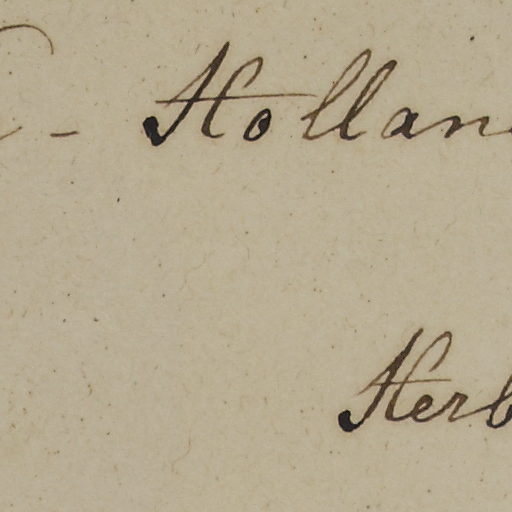 - Hollan
Herb